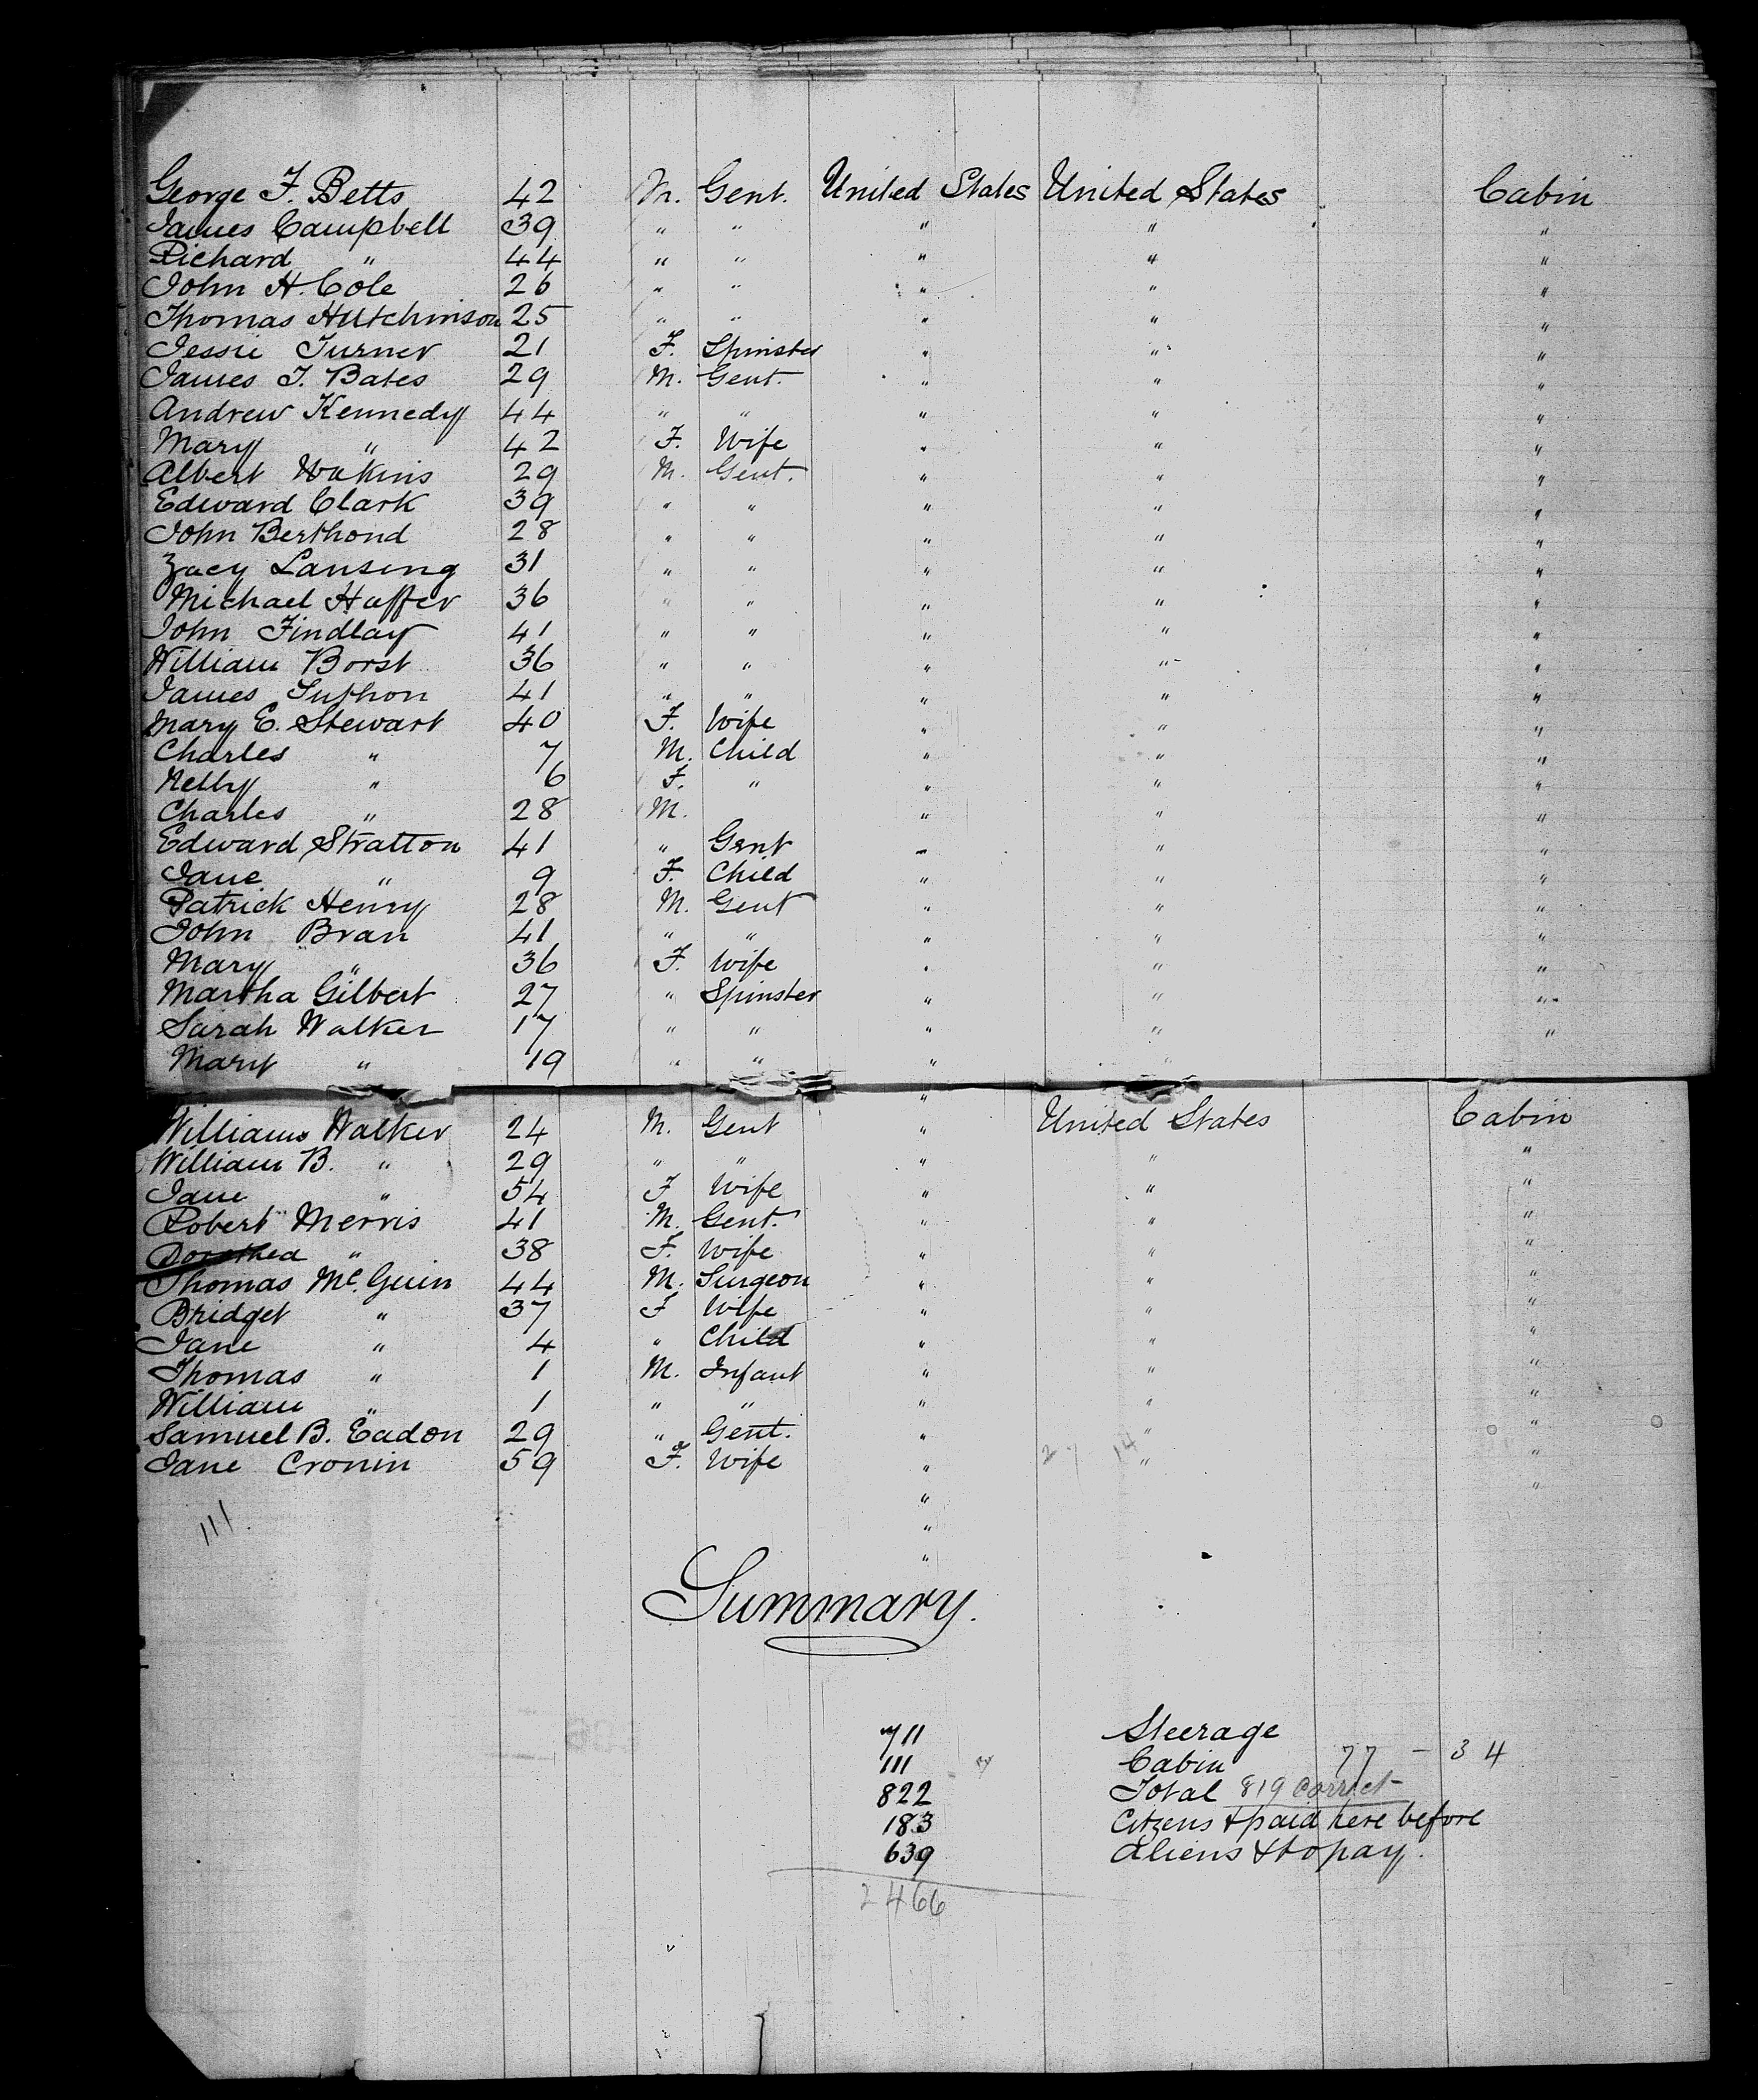 George F. Betts 42 M. Gent. United States United States Cabin
James Campbell 39 " " " " "
Richard " 44 " " " " "
John H. Cole 26 " " " " "
Thomas Hutchinson 25 " " " " "
Jessie Turner 21 F. Spinster " " "
James T. Bates 29 M. Gent. " " "
Andrew Kennedy 44 " " " " "
Mary " 42 F. Wife " " "
Albert Wakins 29 M. Gent. " " "
Edward Clark 39 " " " " "
John Berthond 28 " " " " "
Zacy Lansing 31 " " " " "
Michael Haffer 36 " " " " "
John Findlay 41 " " " " "
William Borst 36 " " " " "
James Suthon 41 " " " " "
Mary E. Stewart 40 F. Wife " " "
Charles " 7 M. Child " " "
Nelly " 6 F. " " " "
Charles " 28 M. " " "
Edward Stratton 41 " Gent " " "
Jane " 9 F. Child " " "
Patrick Henry 28 M. Gent " " "
John Bran 41 " " " " "
Mary " 36 F. Wife " " "
Martha Gilbert 27 " Spinster " " "
Sarah Walker 17 " " " " "
Mary " 19 " " " "
"
William Walker 24 M. Gent " United States Cabin
William B. " 29 " " " " "
Jane " 54 F Wife " " "
Robert Merris 41 M. Gent. " " "
Dorothea " 38 F. Wife " " "
Thomas McGuin 44 M. Surgeon " " "
Bridget " 37 F Wife " " "
Jane " 4 " Child " " "
Thomas " 1 M. Infant " " "
William " 1 " " " " "
Samuel B. Eadon 29 " Gent. " " "
Jane Cronin 59 F. Wife " " "
27 14
" "
111. "
"
Summary.
711 Steerage
111 Cabin 77 - 34
822 Total 819 correct
183 Citzens & paid here before
639 Aliens & to pay.
2466